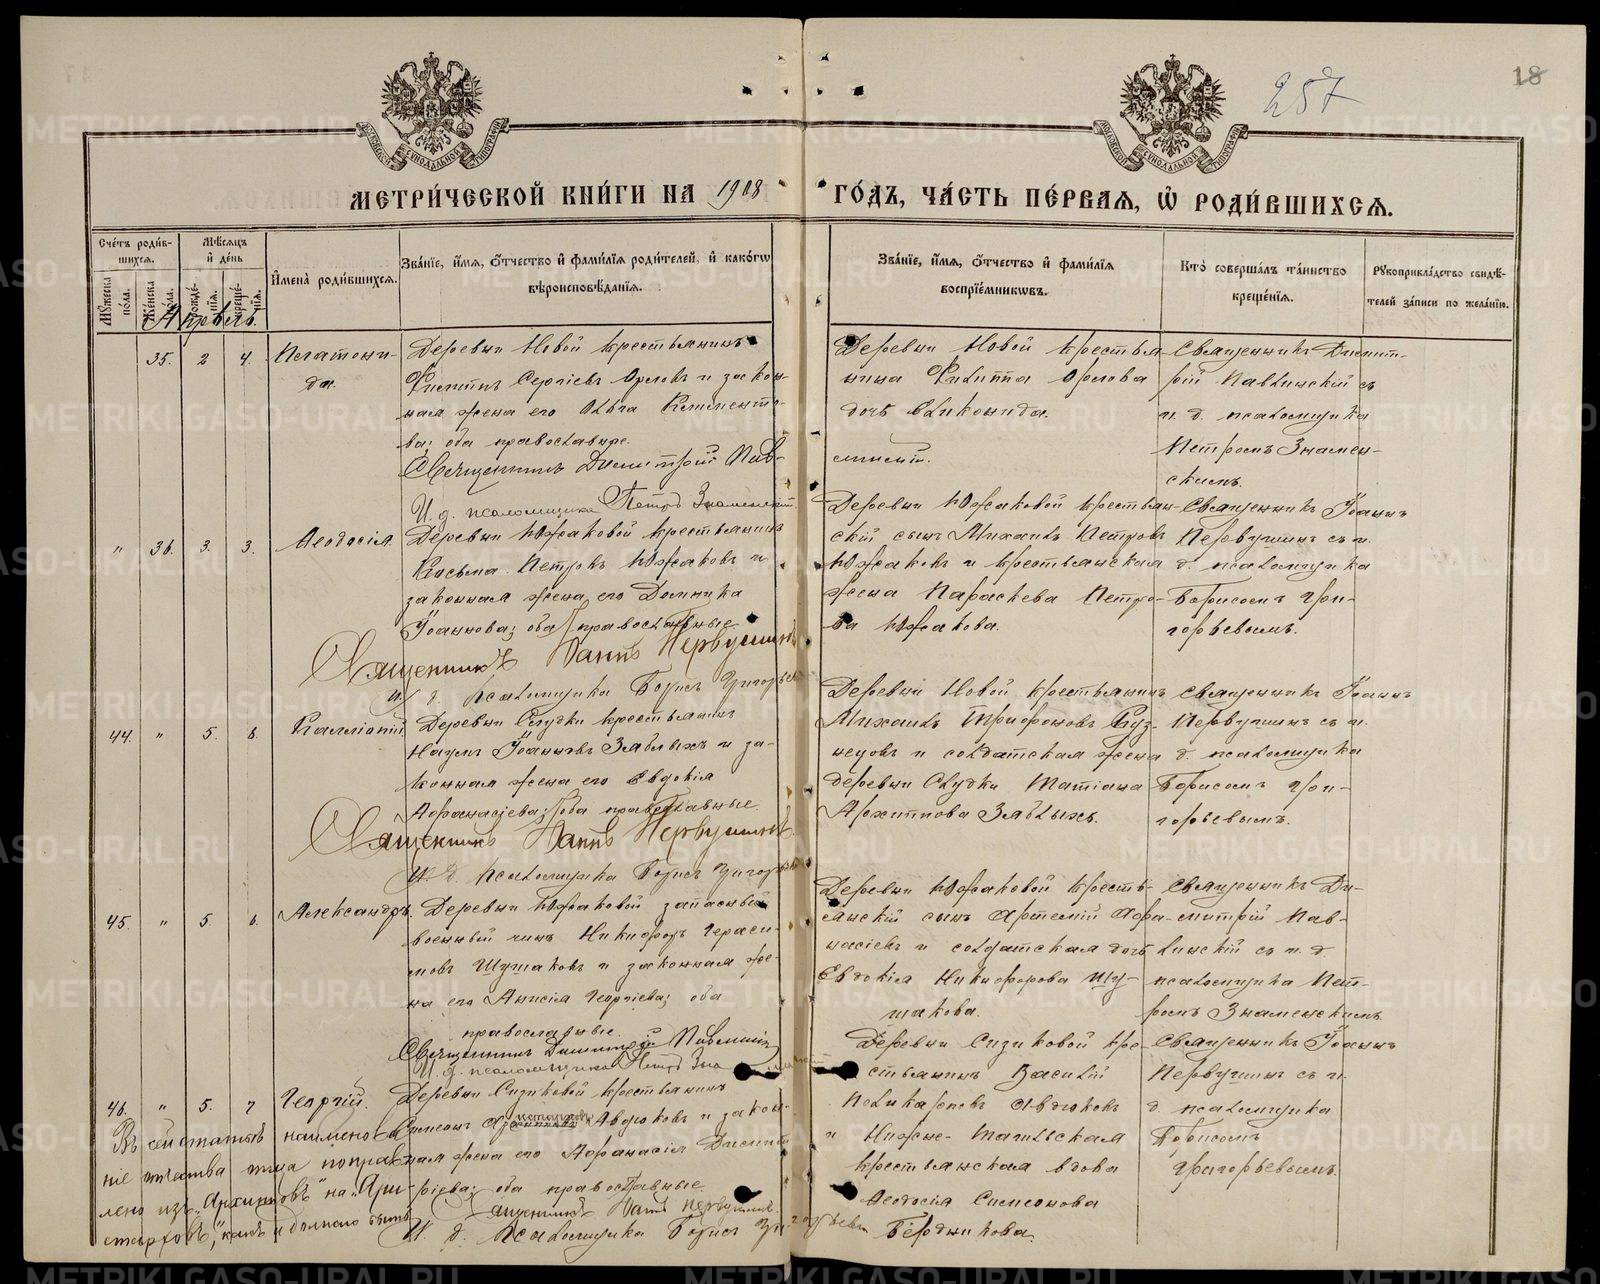 18
257
МОСКОВСКОЙ СѴНОДАЛЬНОЙ ТИПОГРАФІИ
МОСКОВСКОЙ СѴНОДАЛЬНОЙ ТИПОГРАФІИ
МЕТРИ́ЧЕСКОЙ КНИ́ГИ НА 1908 ГО́ДЪ, ЧА́СТЬ ПЕ́РВАЯ, Ѡ҆ РОДИ́ВШИХСЯ.
Сче́тъ роди́в-
шихся.
Мꙋ́жеска по́ла.
Же́нска по́ла.
Мѣ́сяцъ
и҆ де́нь
рожде́-нїя.
креще́-нїя.
И҆мена̀ роди́вшихся.
Зва́нїе, и҆́мя, ѻ҆́тчество и҆ фами́лїя роди́телей, и҆ како́гѡ
вѣроисповѣ́данїя.
Зва́нїе, и҆́мя, ѻ҆́тчество и҆ фами́лїя
воспрїе́мниковъ.
Кто̀ соверша́лъ та́инство
креще́нїя.
Рꙋкоприкла́дство свидѣ́-
телей за́писи по жела́нїю.
Апрѣль.
35. 2 4.
Деревни Новой крестьянинъ
Филиппъ Сергіевъ Орловъ и закон-
ная жена его Ольга Климентьe-
ва; оба православные.
Священникъ Димитрій Пав-
И. д. псаломщика Петръ Знаменскій
Деревни Новой крестья-
нина Филиппа Орлова
дочь
Священникъ Димит-
рій Павлинскій съ
и. д. псаломщика
Петромъ Знамен-
скимъ.
" 36. 3. 3. Ѳеодосія.
Деревни Южаковой крестьянинъ
Косьма Петровъ Южаковъ и
законная жена его Домника
Іоаннова; оба православные.
Священникъ Іоаннъ Первушинъ
И. д. Псаломщика Борисъ Григорьевъ
Деревни Южаковой крестьян-
скій сынъ Михаилъ Петровъ
Южаковъ и крестьянская
жена Параскева Петро-
ва Южакова.
Священникъ Іоаннъ
Первушинъ съ и.
д. псаломщика
Борисомъ Гри-
горьевымъ.
44. " 5. 6. Калліопій
Деревни Слудки крестьянинъ
Наумъ Іоанновъ Зяблыхъ и за-
конная жена его Евдокія
Аѳанасіева; оба православные.
Священникъ Іоаннъ Первушинъ
И. д. Псаломщика Борисъ Григорьевъ
Деревни Новой крестьянинъ
Михаилъ Трифоновъ Куз-
нецовъ и солдатская жена
деревни Слудки Татіана
Архиппова Зяблыхъ.
Священникъ Іоаннъ
Первушинъ съ и.
д. псаломщика
Борисомъ Гри-
горьевымъ.
45. " 5. 6. Александръ.
Деревни Южаковой запасный
военный чинъ Никифоръ Гераси-
мовъ Шушаковъ и законная же-
на его Анисія Георгіева; оба
православные.
Священникъ Димитрій Павлинскій
И. д. псаломщика Петръ Знаменскій
Деревни Южаковой кресть-
янскій сынъ Артемій Аѳа-
насіевъ и солдатская дочь
Евдокія Никифорова Шу-
шакова.
Священникъ Ди-
митрій Пав-
линскій съ и. д.
псаломщика Пет-
ромъ Знаменскимъ.
46. " 5. 7 Георгій.
Деревни Сизиковой крестьянинъ
Симеонъ Авдюковъ и закон-
ная жена его Аѳанасія Димит-
ріева; оба православные.
Священникъ Іоаннъ Первушинъ
И. д. Псаломщика Борисъ Григорьевъ
Деревни Сизиковой кре-
стьянинъ Василій
Поликарповъ Авдюковъ
и Нижне-Тагильская
крестьянская вдова
Ѳеодосія Симеонова
Бердникова.
Священникъ Іоаннъ
Первушинъ съ и.
д. псаломщика
Борисомъ
Григорьевымъ.
Въ сей статьѣ наименова-
ніе отчества отца поправ-
лено изъ „Архипповъ" на „Ари-
старховъ", какъ и должно быть